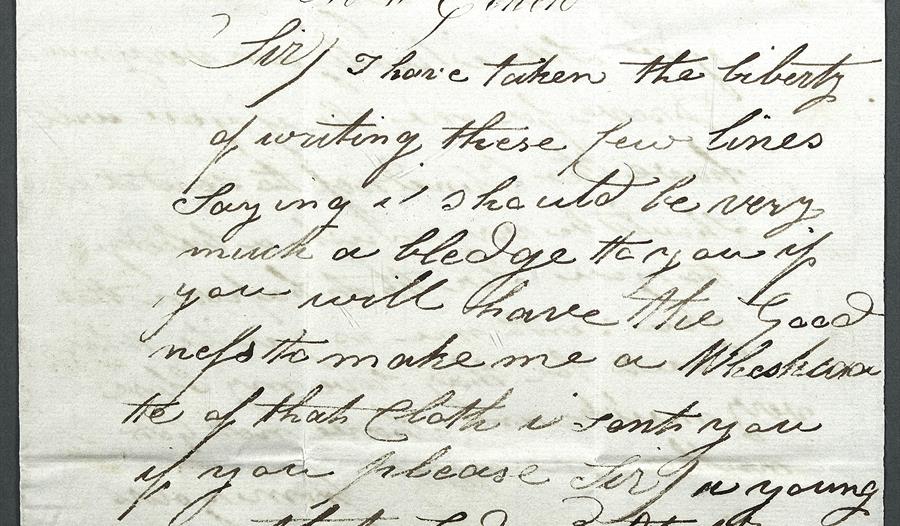 Sir) I have taken the liberty
of writing these few lines
Saying i should be very
much a bledge to you if
you will have the Good
ness to make me a Wheskoa
te of that Cloth i sent you
if you please Sir) a young
that